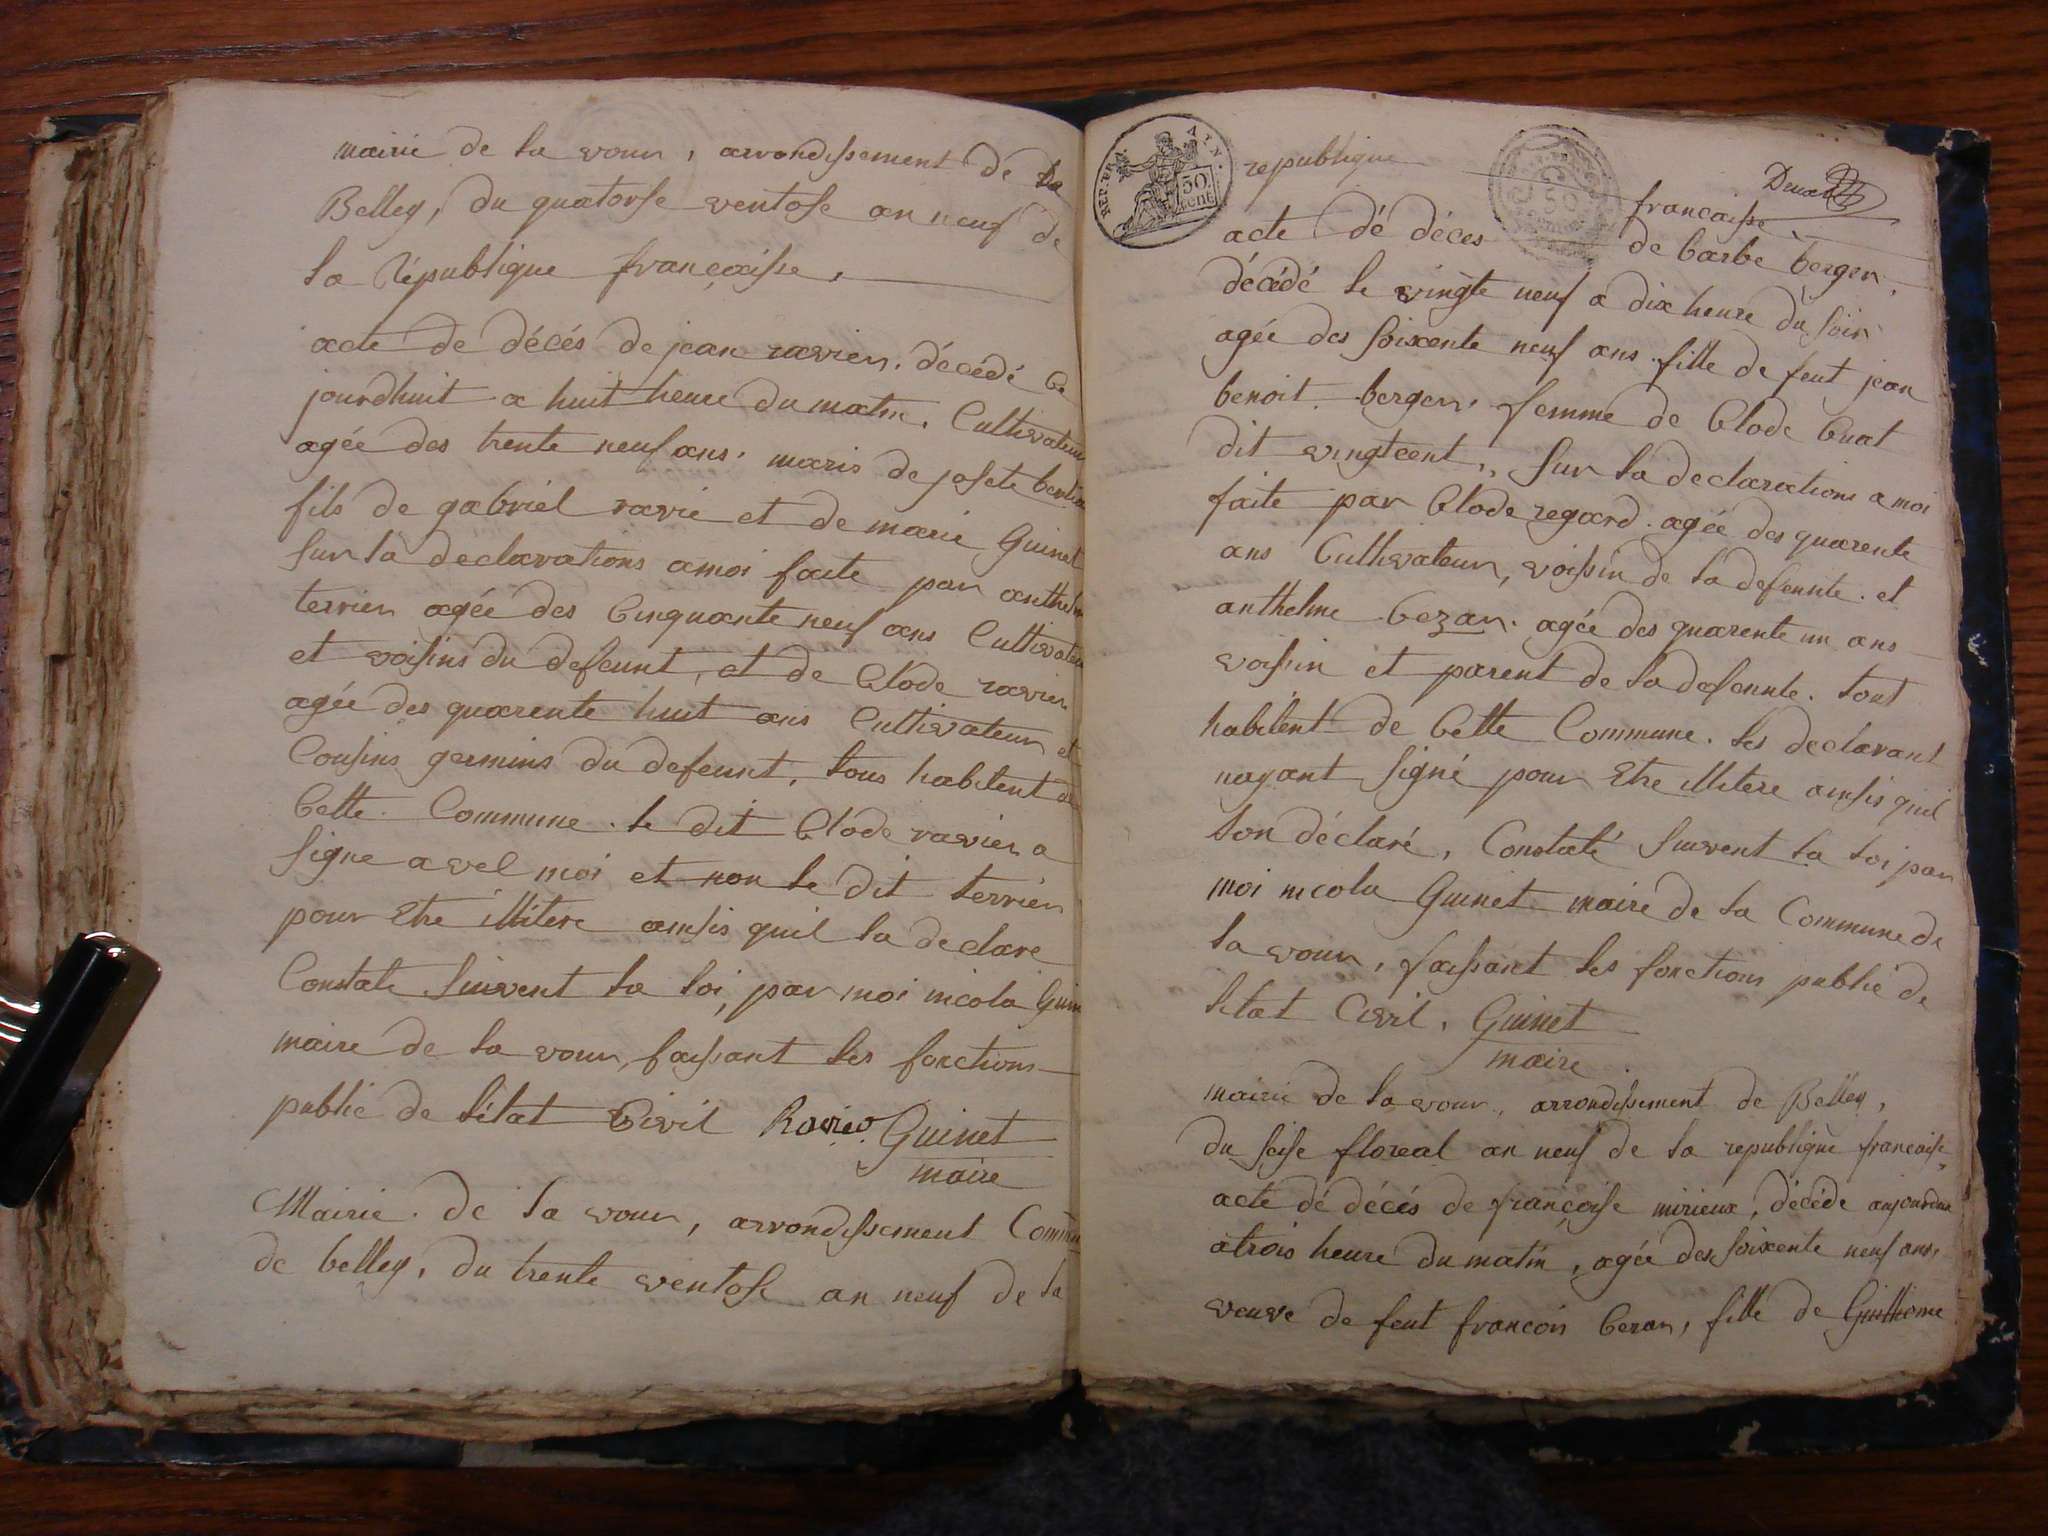 mairie de la vour, arrondissement de la
Belley, du quatorse ventose an neuf de
la République françaisse,
acte de décés de jean ravier. décédé ce
jourdhuit a huit heure du matin, Cultivateur
agée des trente neuf ans. maris de josete
fils de gabriel ravie et de marie Guinet
sur la declarations amoi faite par anthelme
terrier agée des Cinquante neuf ans Cultivateur
et voisins du defeunt, et de Clode ravier
agée des quarente huit ans Cultivateur et
Cousins germins du defeunt, tous habitent de
Cette Commune. le dit Clode ravier a
signe avel moi et non le dit terrier
pour Etre illitere ainsis quil la declare
Constate suivent la loi, par moi nicola Guin
maire de la vour, faissant les fonctions
public de létat Civil Ravier Guinet
maire
Mairie de la vour, arrondissement Commu
de belley, du trente ventose an neuf de la
REP. FRA. AIN.
50 cent
republique francaisse
acte dé déces de barbe berger,
décédé le vingte neuf a dix heure du soir
agée des soixente neuf ans. fille de feut jean
benoit berger, femme de Clode Cuat
dit vingtcent, sur la declarations a moi
faite par Clode regard. agée des quarente
ans Cultivateur, voissin de la defeunte. et
anthelme Cezar. agée des quarente un ans
voissin et parent de la defeunte. tout
habitent de Cette Commune. les declarant
nayant signé pour Etre illitere ainsis quil
lon déclaré, Constaté suivent la loi par
moi nicola Guinet maire de la Commune de
la vour, faissant les fonctions public de
létat Civil. Guinet
maire.
mairie de la vour, arrondissement de Belley,
du seise floreal an neuf de la republique francaise,
acte dé décés de françoise mirieux, décéde aujourdui
a trois heure du matin, agée des soixente neuf ans,
veuve de feut françois Cezar, fille de Guilhome